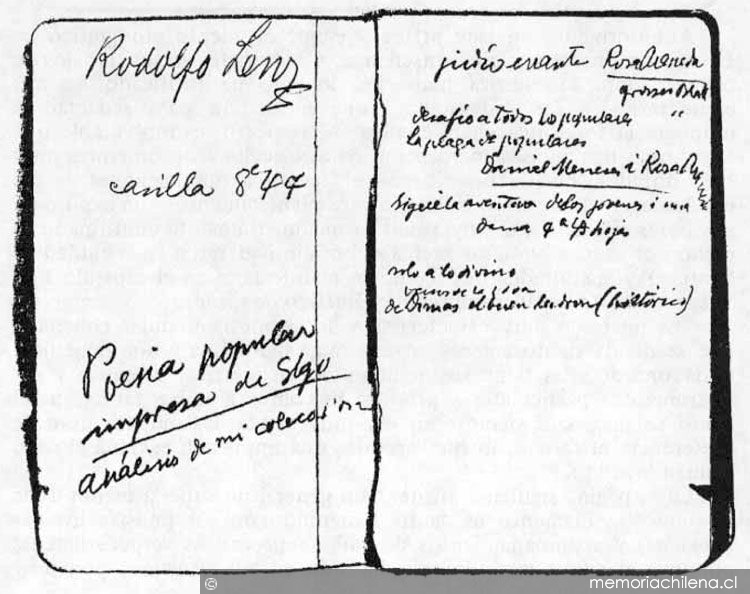 Rodolfo Lenz
casilla 844
Poesia popular
impresa de Stgo
análisis de mi coleccion
judío errante Rosa Araneda
desafío a todos lo populares
la plaga de populares
Daniel Meneses i Rosa
Sigue la aventura de los jovenes i una
dama 4ª hoja
solo a lo divino
de Dimas el buen ladron (histórico)
© memoriachilena.cl